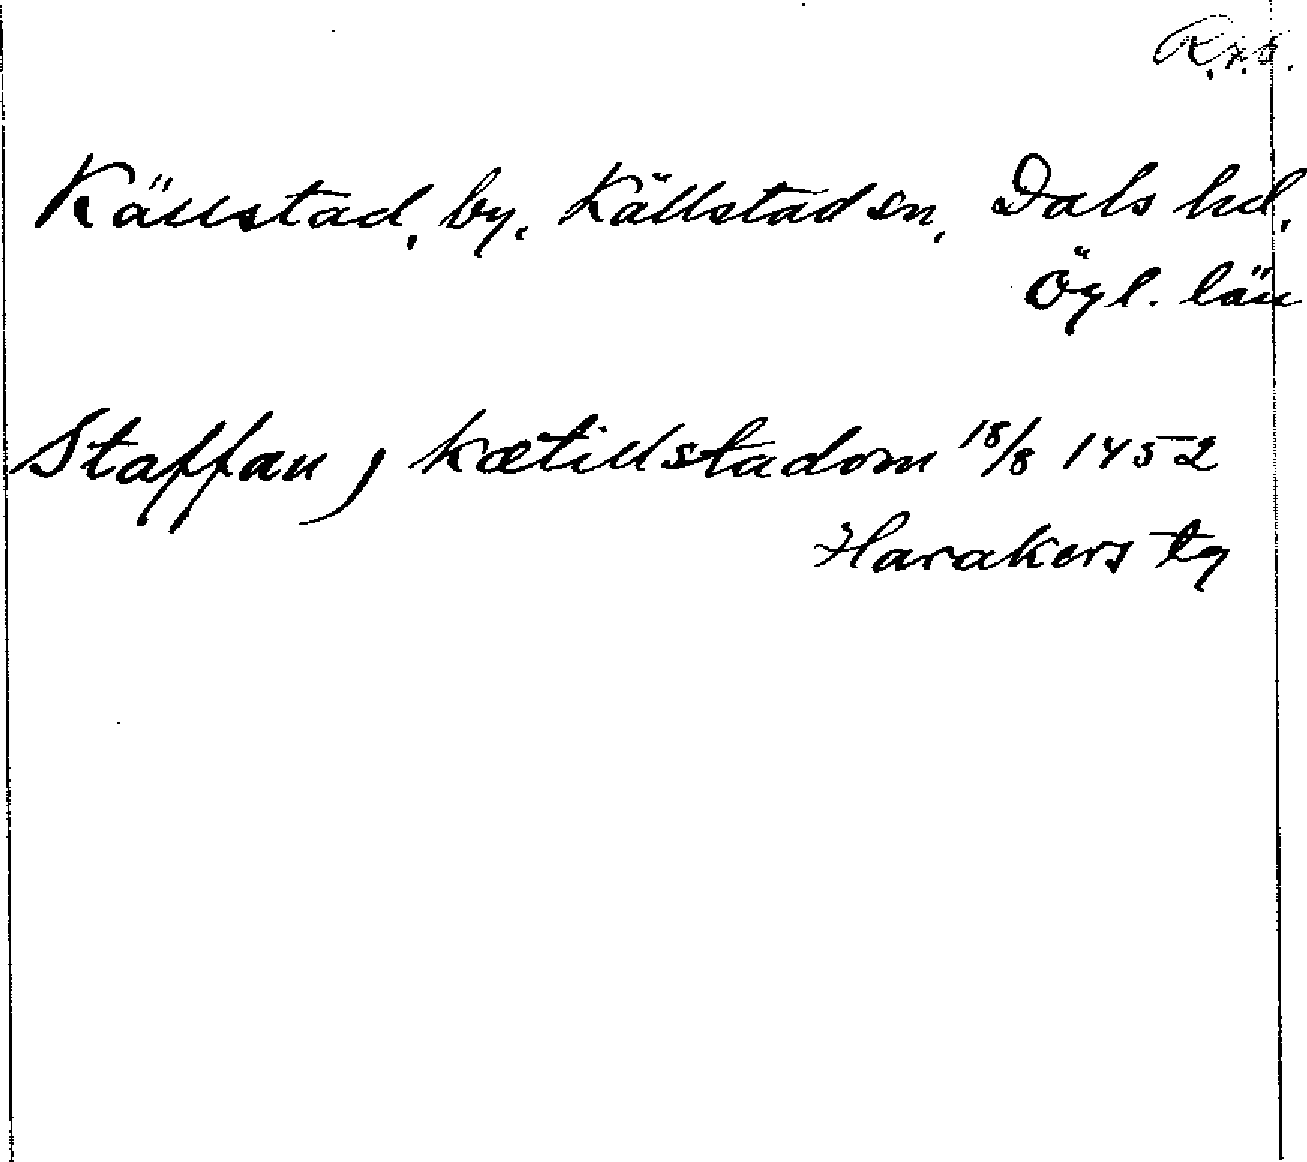 Källstad, by, Källstad sn, Dals hd,
Ögl. län
Staffan j Kætillstadom 18/8 1452
Harakers tg